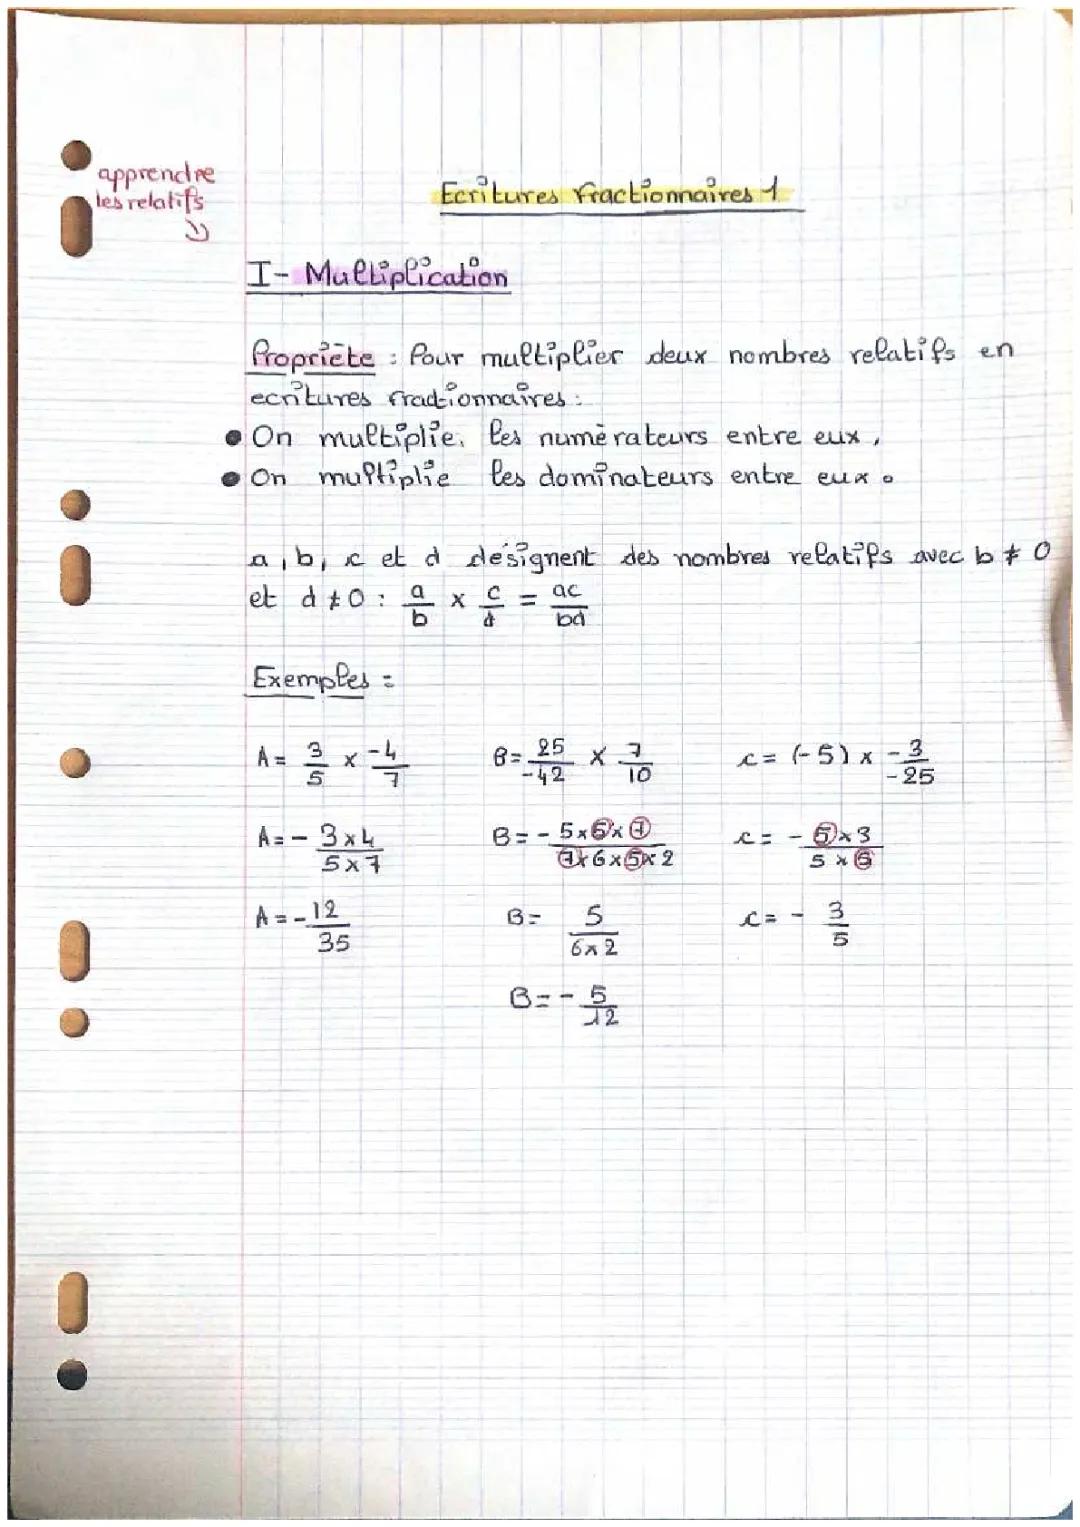 apprendre
les relatifs
Ecritures fractionnaires 1
I- Multiplication
Propriète : Pour multiplier deux nombres relatifs en
ecritures fractionnaires :
• On multiplie les numèrateurs entre eux,
• On multiplie les dominateurs entre eux.
a, b, c et d désignent des nombres relatifs avec b ≠ 0
et d ≠ 0 : a/b × c/d = ac/bd
Exemples :
A = 3/5 × -4/7 B = 25/-42 × 7/10 C = (-5) × -3/-25
A = - 3×4/5×7 B = - 5×5×7/7×6×5×2 C = - 5×3/5×5
A = - 12/35 B = 5/6×2 C = - 3/5
B = - 5/12